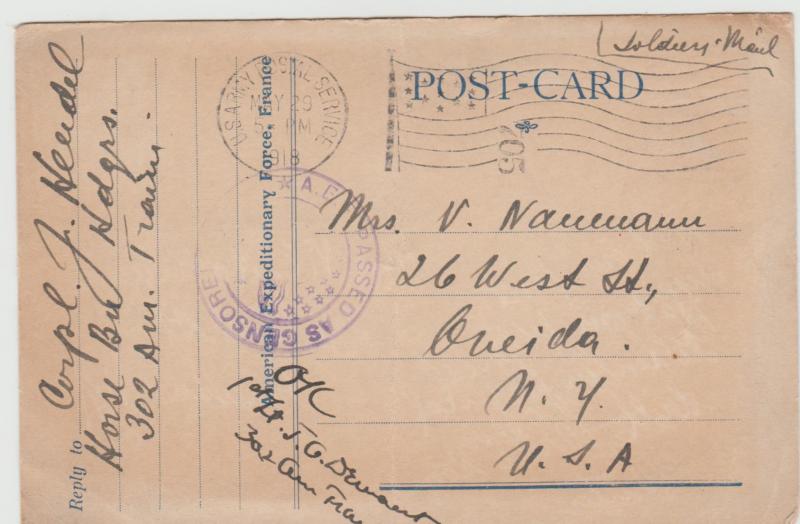 (Soldiers Mail
POST-CARD
U.S. ARMY POSTAL SERVICE
MAY 29
5 PM
1918
405
American Expeditionary Force, France
★ A.E. PASSED AS CENSORED
Mrs. V. Naumann
26 West St.,
Oneida.
N. Y.
U. S. A
Reply to
Corpl. J. Hendel
Horse Bn Hdqrs.
302 Am. Train.
OK
J. G.
302 Am Train